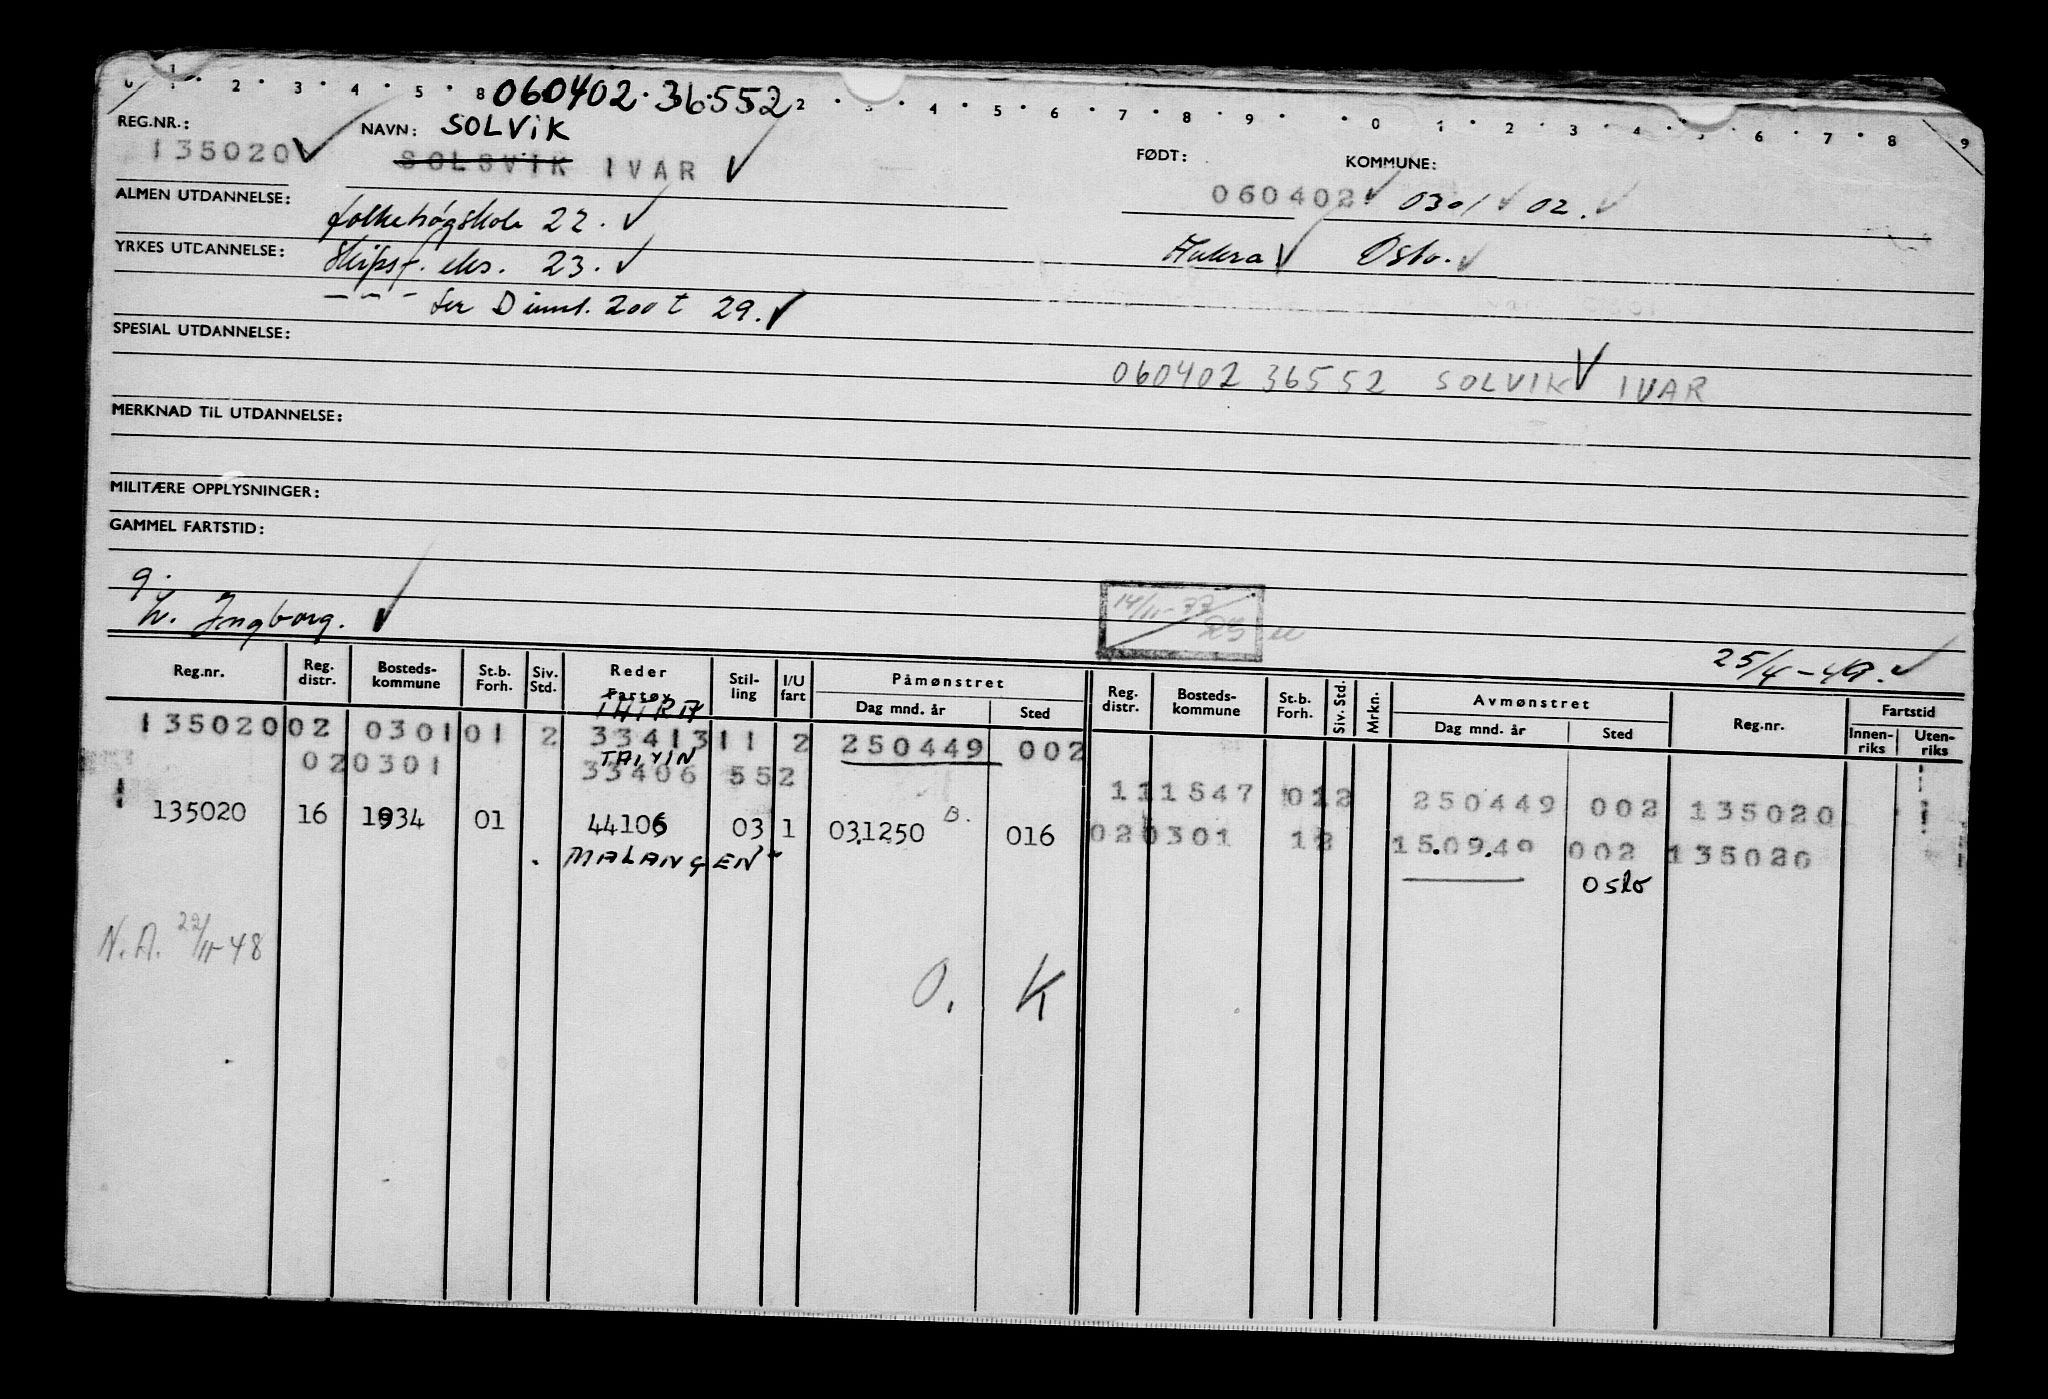 0 1 2 3 4 5 8 060402.36552 2 3 4 5 6 7 8 9 0 1 2 3 4 5 6 7 8 9
REG.NR.: NAVN: SOLVIK
135020 SOLSVIK IVAR FØDT: KOMMUNE:
060402 0301 02.
ALMEN UTDANNELSE: folkehøgskole 22.
YRKES UTDANNELSE: Skipsf. eks. 23. Oslo.
- - - for D innt. 200 t 29.
SPESIAL UTDANNELSE:
060402 36552 SOLVIK IVAR
MERKNAD TIL UTDANNELSE:
MILITÆRE OPPLYSNINGER:
GAMMEL FARTSTID:
g.
h. Ingborg.
14/11-77
25/4-49.
Reg.nr. Reg. distr. Bosteds-kommune St.b. Forh. Siv. Std. Reder Fartøy Stil-ling I/U fart Påmønstret Dag mnd. år Sted Reg. distr. Bosteds-kommune St.b. Forh. Siv. Std. Mrkn. Avmønstret Dag mnd. år Sted Reg.nr. Fartstid Innen-riks Uten-riks
THIRA
135020 02 0301 01 2 33413 11 2 250449 002
TAIYIN
020301 33406 552
111547 012 250449 002 135020
135020 16 1934 01 44106 03 1 031250 B. 016
020301 12 15.09.49 002 135020
"MALANGEN"
Oslo
N.A. 22/11-48
O. K